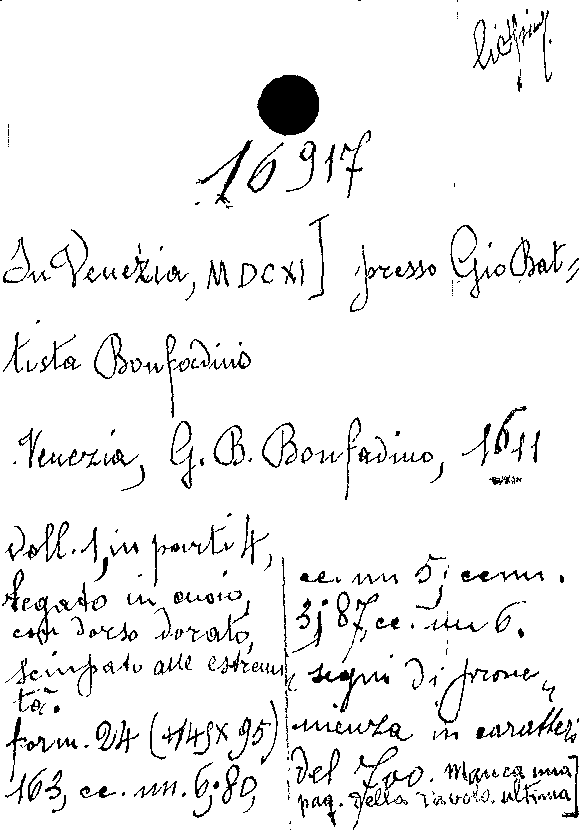 16917
In Venezia, MDCXI] presso Gio Bat=
tista Bonfadino
Venezia, G. B. Bonfadino, 1611
Voll. 1, in parti 4,
legato in cuoio,
con dorso dorato,
sciupato alle estremi
tà.
form. 24 (145 x 95)
163, cc. nn. 6; 80,
cc. nn 5; cc nn.
3; 87, cc. nn 6.
segni di prove=
nienza in caratteri
del 700. Manca una
pag. della tavola ultima]